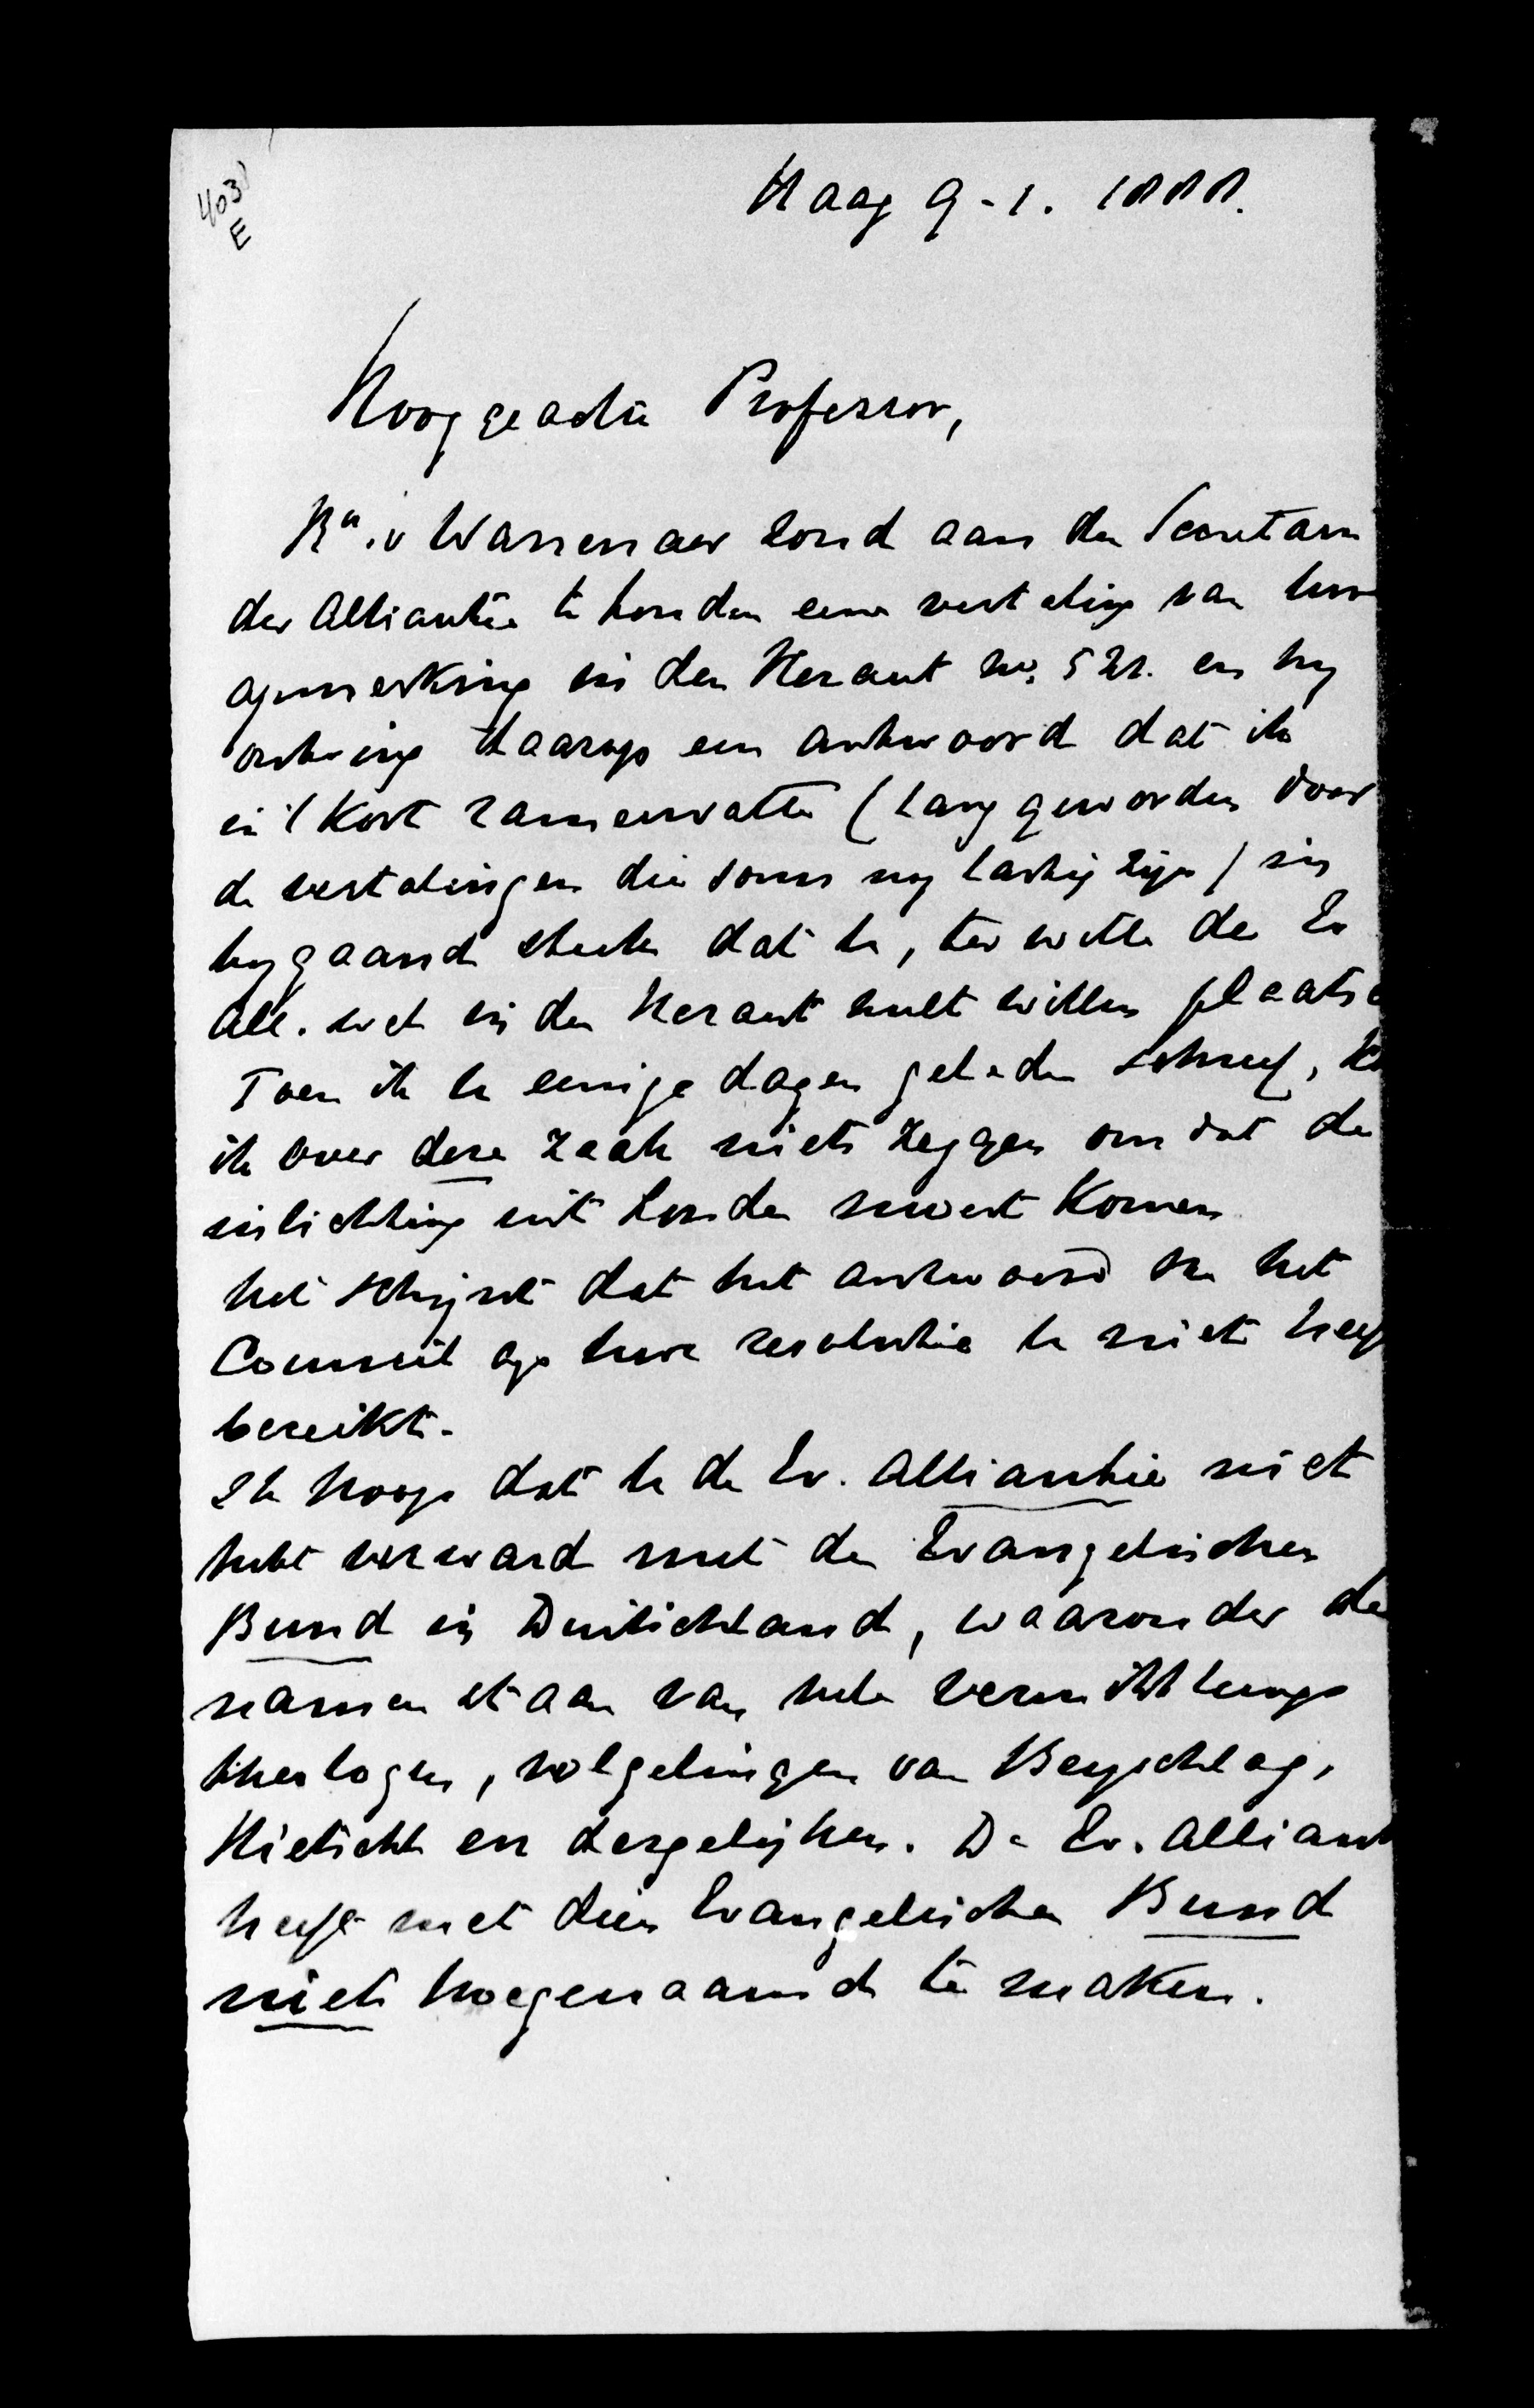 403)
E
Haag 9-1. 1888.
Hooggeachte Professor,
Bn. v Wassenaer zond aan den Secretaris
der Alliantie te Londen eene vertaling van Uwe
opmerking in den Heraut no. 521. en hy
ontving daarop een antwoord dat ik
in 't kort zamenvatte (lang geworden door
de vertalingen die soms nog lastig zijn) in
bygaand stuk dat U, ter wille der Ev
All. wel in den Heraut zult willen plaatse
Toen ik U eenige dagen geleden schreef, ko
ik over deze zaak niets zeggen omdat de
inlichting uit Londen moest komen
het schijnt dat het antwoord van het
Council op Uwe resolutie U niet heef
bereikt.
Ik hoop dat U de Ev. Alliantie niet
hebt verward met de Evangelischen
Bund in Duitschland, waaronder de
namen staan van vele vermittlungs
theologen, volgelingen van Beyschlag,
en dergelijken. De Ev. Alliant
heeft met dien Evangelischen Bund
niets hoegenaamd te maken.